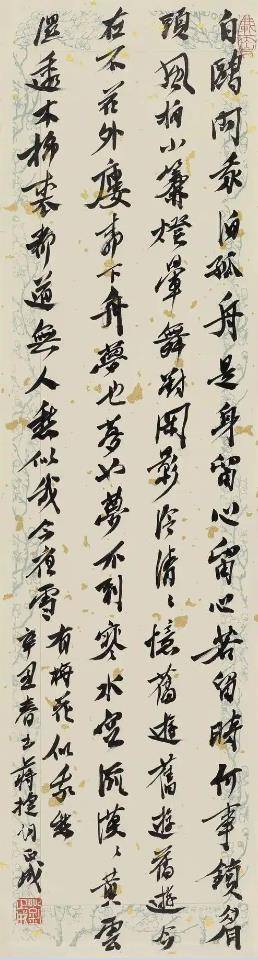 白鷗問我泊孤舟是身留心留心若留時何事鎖眉
頭風拍小簾燈暈舞對閒影冷清〻憶舊遊舊遊舊遊今
在不花外樓柳下舟夢也夢也夢不到寒水空流漠〻黃雲
溼透木棉裘都道無人愁似我今夜雪
有梅花似我愁
辛丑春 蔣捷詞